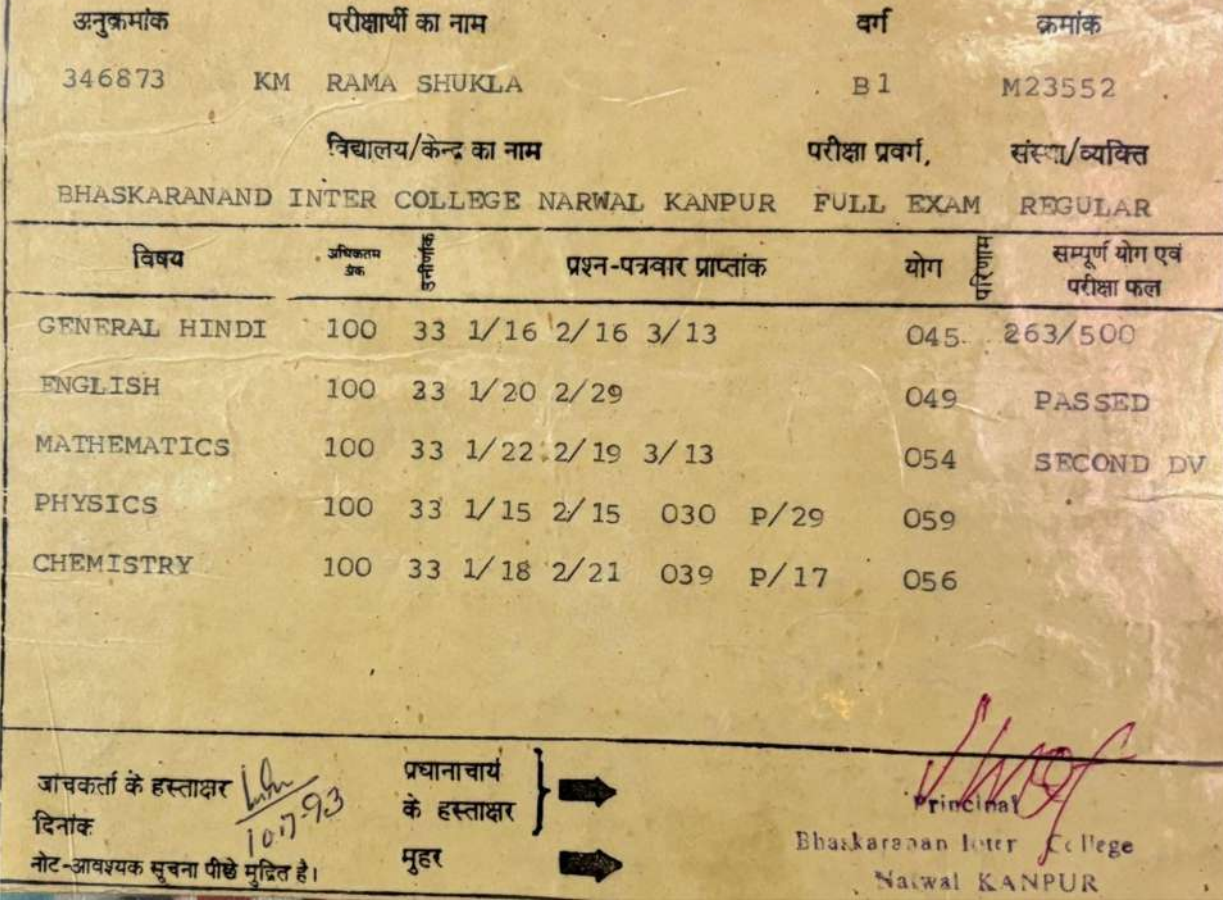 अनुक्रमांक परीक्षार्थी का नाम वर्ग क्रमांक
346873 KM RAMA SHUKLA B1 M23552
विद्यालय/केन्द्र का नाम परीक्षा प्रवर्ग, संस्था/व्यक्ति
BHASKARANAND INTER COLLEGE NARWAL KANPUR FULL EXAM REGULAR
विषय अधिकतम अंक उत्तीर्णांक प्रश्न-पत्रवार प्राप्तांक योग परिणाम सम्पूर्ण योग एवं
परीक्षा फल
GENERAL HINDI 100 33 1/16 2/16 3/13 045 263/500
ENGLISH 100 33 1/20 2/29 049 PASSED
MATHEMATICS 100 33 1/22 2/19 3/13 054 SECOND DV
PHYSICS 100 33 1/15 2/15 030 P/29 059
CHEMISTRY 100 33 1/18 2/21 039 P/17 056
जांचकर्ता के हस्ताक्षर प्रधानाचार्य
के हस्ताक्षर
दिनांक 10.7.93
Principal
मुहर Bhaskaranan Inter College
नोट-आवश्यक सूचना पीछे मुद्रित है।
Narwal KANPUR